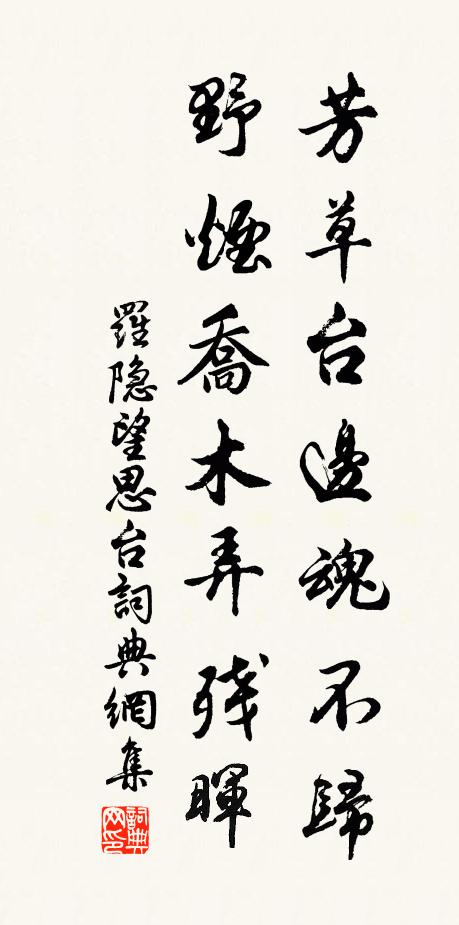 芳草台邊魂不歸
野煙喬木弄殘暉
羅隐望思台詞典網集
詞典網印